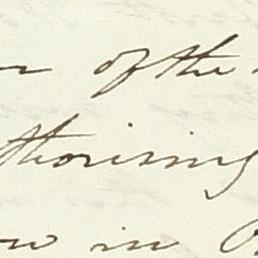 of the
thorising
in